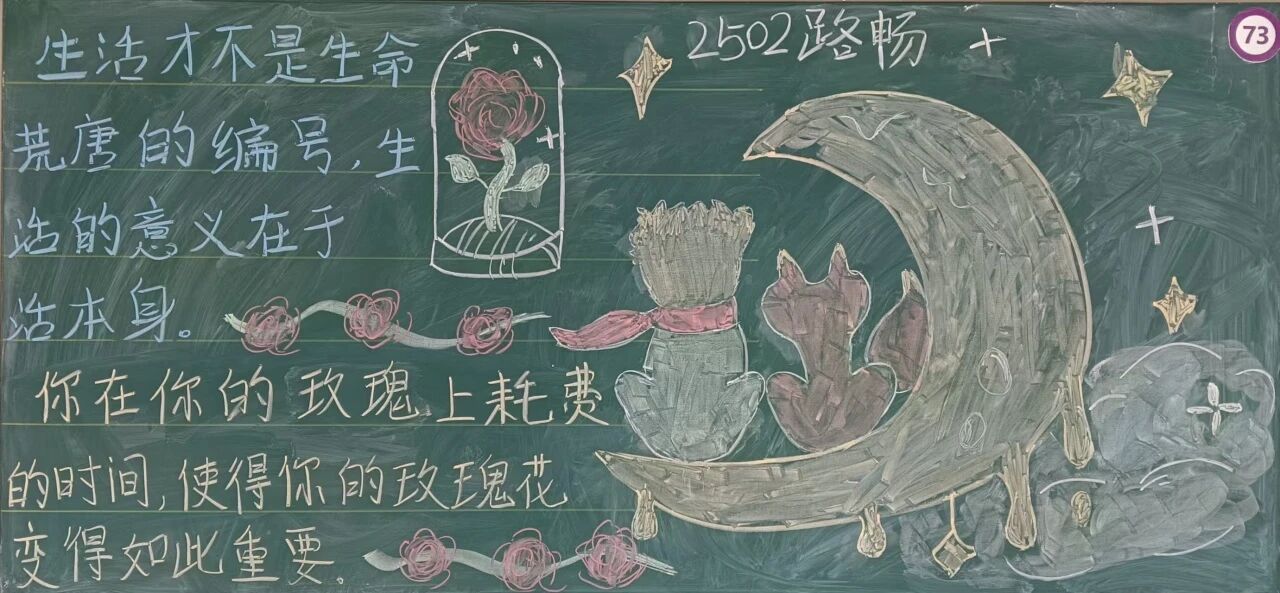 生活才不是生命
荒唐的编号,生
活的意义在于
活本身。
你在你的玫瑰上耗费
的时间,使得你的玫瑰花
变得如此重要。
2502路畅
73